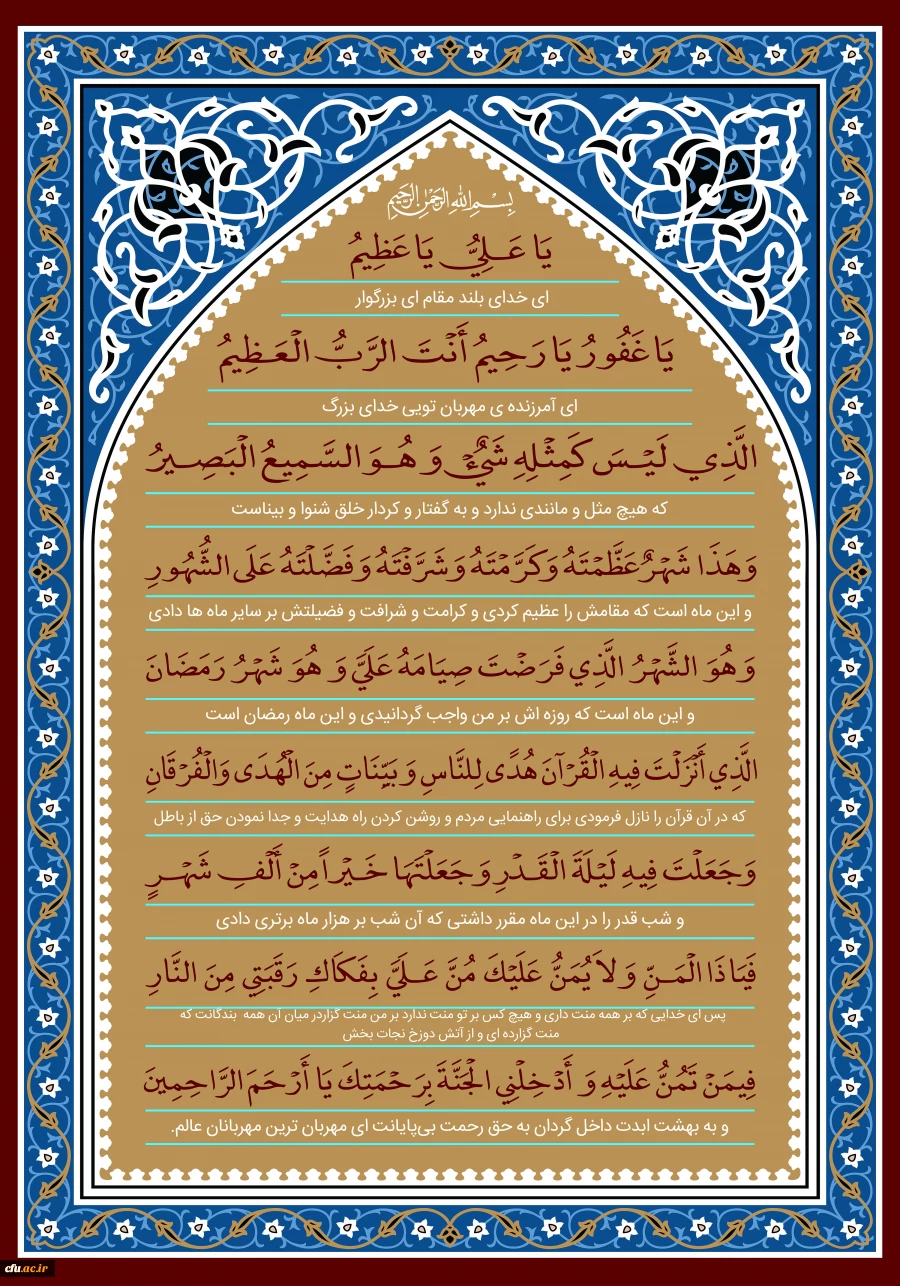 بِسْمِ اللهِ الرَّحْمٰنِ الرَّحِيمِ
يَا عَلِيُّ يَا عَظِيمُ
ای خدای بلند مقام ای بزرگوار
يَا غَفُورُ يَا رَحِيمُ أَنْتَ الرَّبُّ الْعَظِيمُ
ای آمرزنده ی مهربان تویی خدای بزرگ
الَّذِي لَيْسَ كَمِثْلِهِ شَيْءٌ وَ هُوَ السَّمِيعُ الْبَصِيرُ
که هیچ مثل و مانندی ندارد و به گفتار و کردار خلق شنوا و بیناست
وَ هَذَا شَهْرٌ عَظَّمْتَهُ وَ كَرَّمْتَهُ وَ شَرَّفْتَهُ وَ فَضَّلْتَهُ عَلَى الشُّهُورِ
و این ماه است که مقامش را عظیم کردی و کرامت و شرافت و فضیلتش بر سایر ماه ها دادی
وَ هُوَ الشَّهْرُ الَّذِي فَرَضْتَ صِيَامَهُ عَلَيَّ وَ هُوَ شَهْرُ رَمَضَانَ
و این ماه است که روزه اش بر من واجب گردانیدی و این ماه رمضان است
الَّذِي أَنْزَلْتَ فِيهِ الْقُرْآنَ هُدًى لِلنَّاسِ وَ بَيِّنَاتٍ مِنَ الْهُدَى وَالْفُرْقَانِ
که در آن قرآن را نازل فرمودی برای راهنمایی مردم و روشن کردن راه هدایت و جدا نمودن حق از باطل
وَ جَعَلْتَ فِيهِ لَيْلَةَ الْقَدْرِ وَ جَعَلْتَهَا خَيْراً مِنْ أَلْفِ شَهْرٍ
و شب قدر را در این ماه مقرر داشتی که آن شب بر هزار ماه برتری دادی
فَيَا ذَا الْمَنِّ وَ لاَ يُمَنُّ عَلَيْكَ مُنَّ عَلَيَّ بِفَكَاكِ رَقَبَتِي مِنَ النَّارِ
پس ای خدایی که بر همه منت داری و هیچ کس بر تو منت ندارد بر من منت گزاردر میان آن همه بندگانت که
منت گزارده ای و از آتش دوزخ نجات بخش
فِيمَنْ تَمُنُّ عَلَيْهِ وَ أَدْخِلْنِي الْجَنَّةَ بِرَحْمَتِكَ يَا أَرْحَمَ الرَّاحِمِينَ
و به بهشت ابدت داخل گردان به حق رحمت بی‌پایانت ای مهربان ترین مهربانان عالم.
cfu.ac.ir